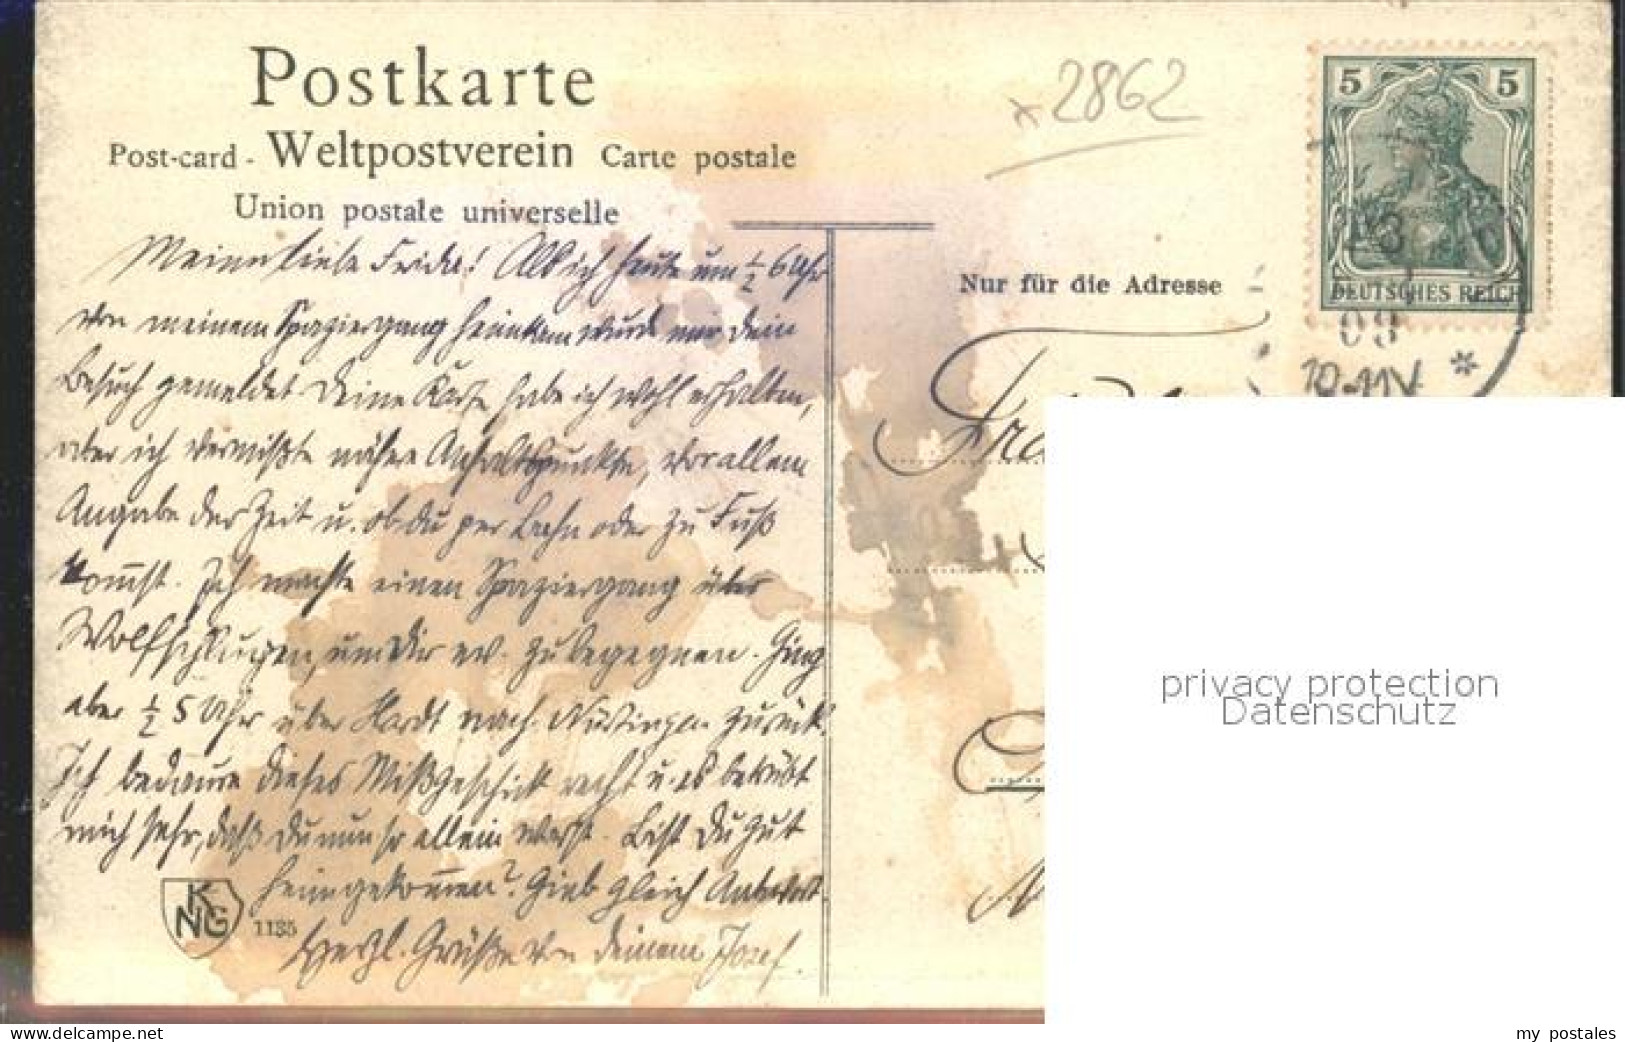 Postkarte
Post-card - Weltpostverein Carte postale
Union postale universelle
* 2862
5 5
DEUTSCHES REICH
09
10-11V. *
Nur für die Adresse
Meine liebe Frida! Als ich heute um ½ 6 Uhr
von meinem Spaziergang heimkam wurde mir Dein
Besuch gemeldet. Deine Karte habe ich wohl erhalten,
aber ich vermißte nähere Anhaltspunkte, vor allem
Angabe der Zeit u. ob du per Bahn oder zu Fuß
kommst. Ich machte einen Spaziergang über
Wolfschlugen, um Dir ev. zu begegnen. Ging
aber ½ 5 Uhr über Hardt nach Nürtingen zurück.
Ich bedaure dieses Mißgeschick recht u. es betrübt
mich sehr, daß Du nun so allein warst. Bist Du gut
heimgekommen? Gieb gleich Antwort.
Herzl. Grüße von deinem Josef.
KNG
1135
privacy protection
Datenschutz
www.delcampe.net
my_postales